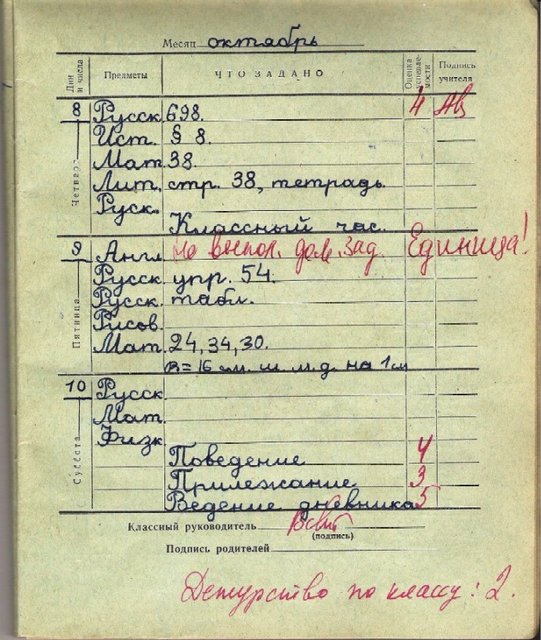 Месяц октябрь
Дни и числа Предметы ЧТО ЗАДАНО Оценка успевае-мости Подпись учителя
8 Четверг
Русск. 698. 4 Ав
Ист. § 8.
Мат. 38.
Лит. стр. 38, тетрадь
Руск.
Классный час.
9 Пятница
Англ. не выпол. дом. зад. Единица!
Русск. упр. 54.
Русск. табл.
Рисов.
Мат. 24, 34, 30.
R = 16 см. ш. м. д. на 1 см
10 Суббота
Русск.
Мат.
Физк
Поведение 4
Прилежание 3
Ведение дневника 5
Классный руководитель
(подпись)
Подпись родителей
Дежурство по классу: 2.